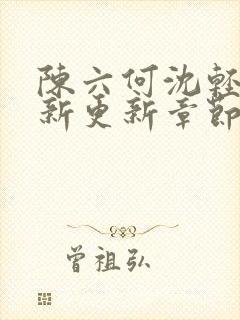 陳六何沈輕
新更新章節
曾祖弘